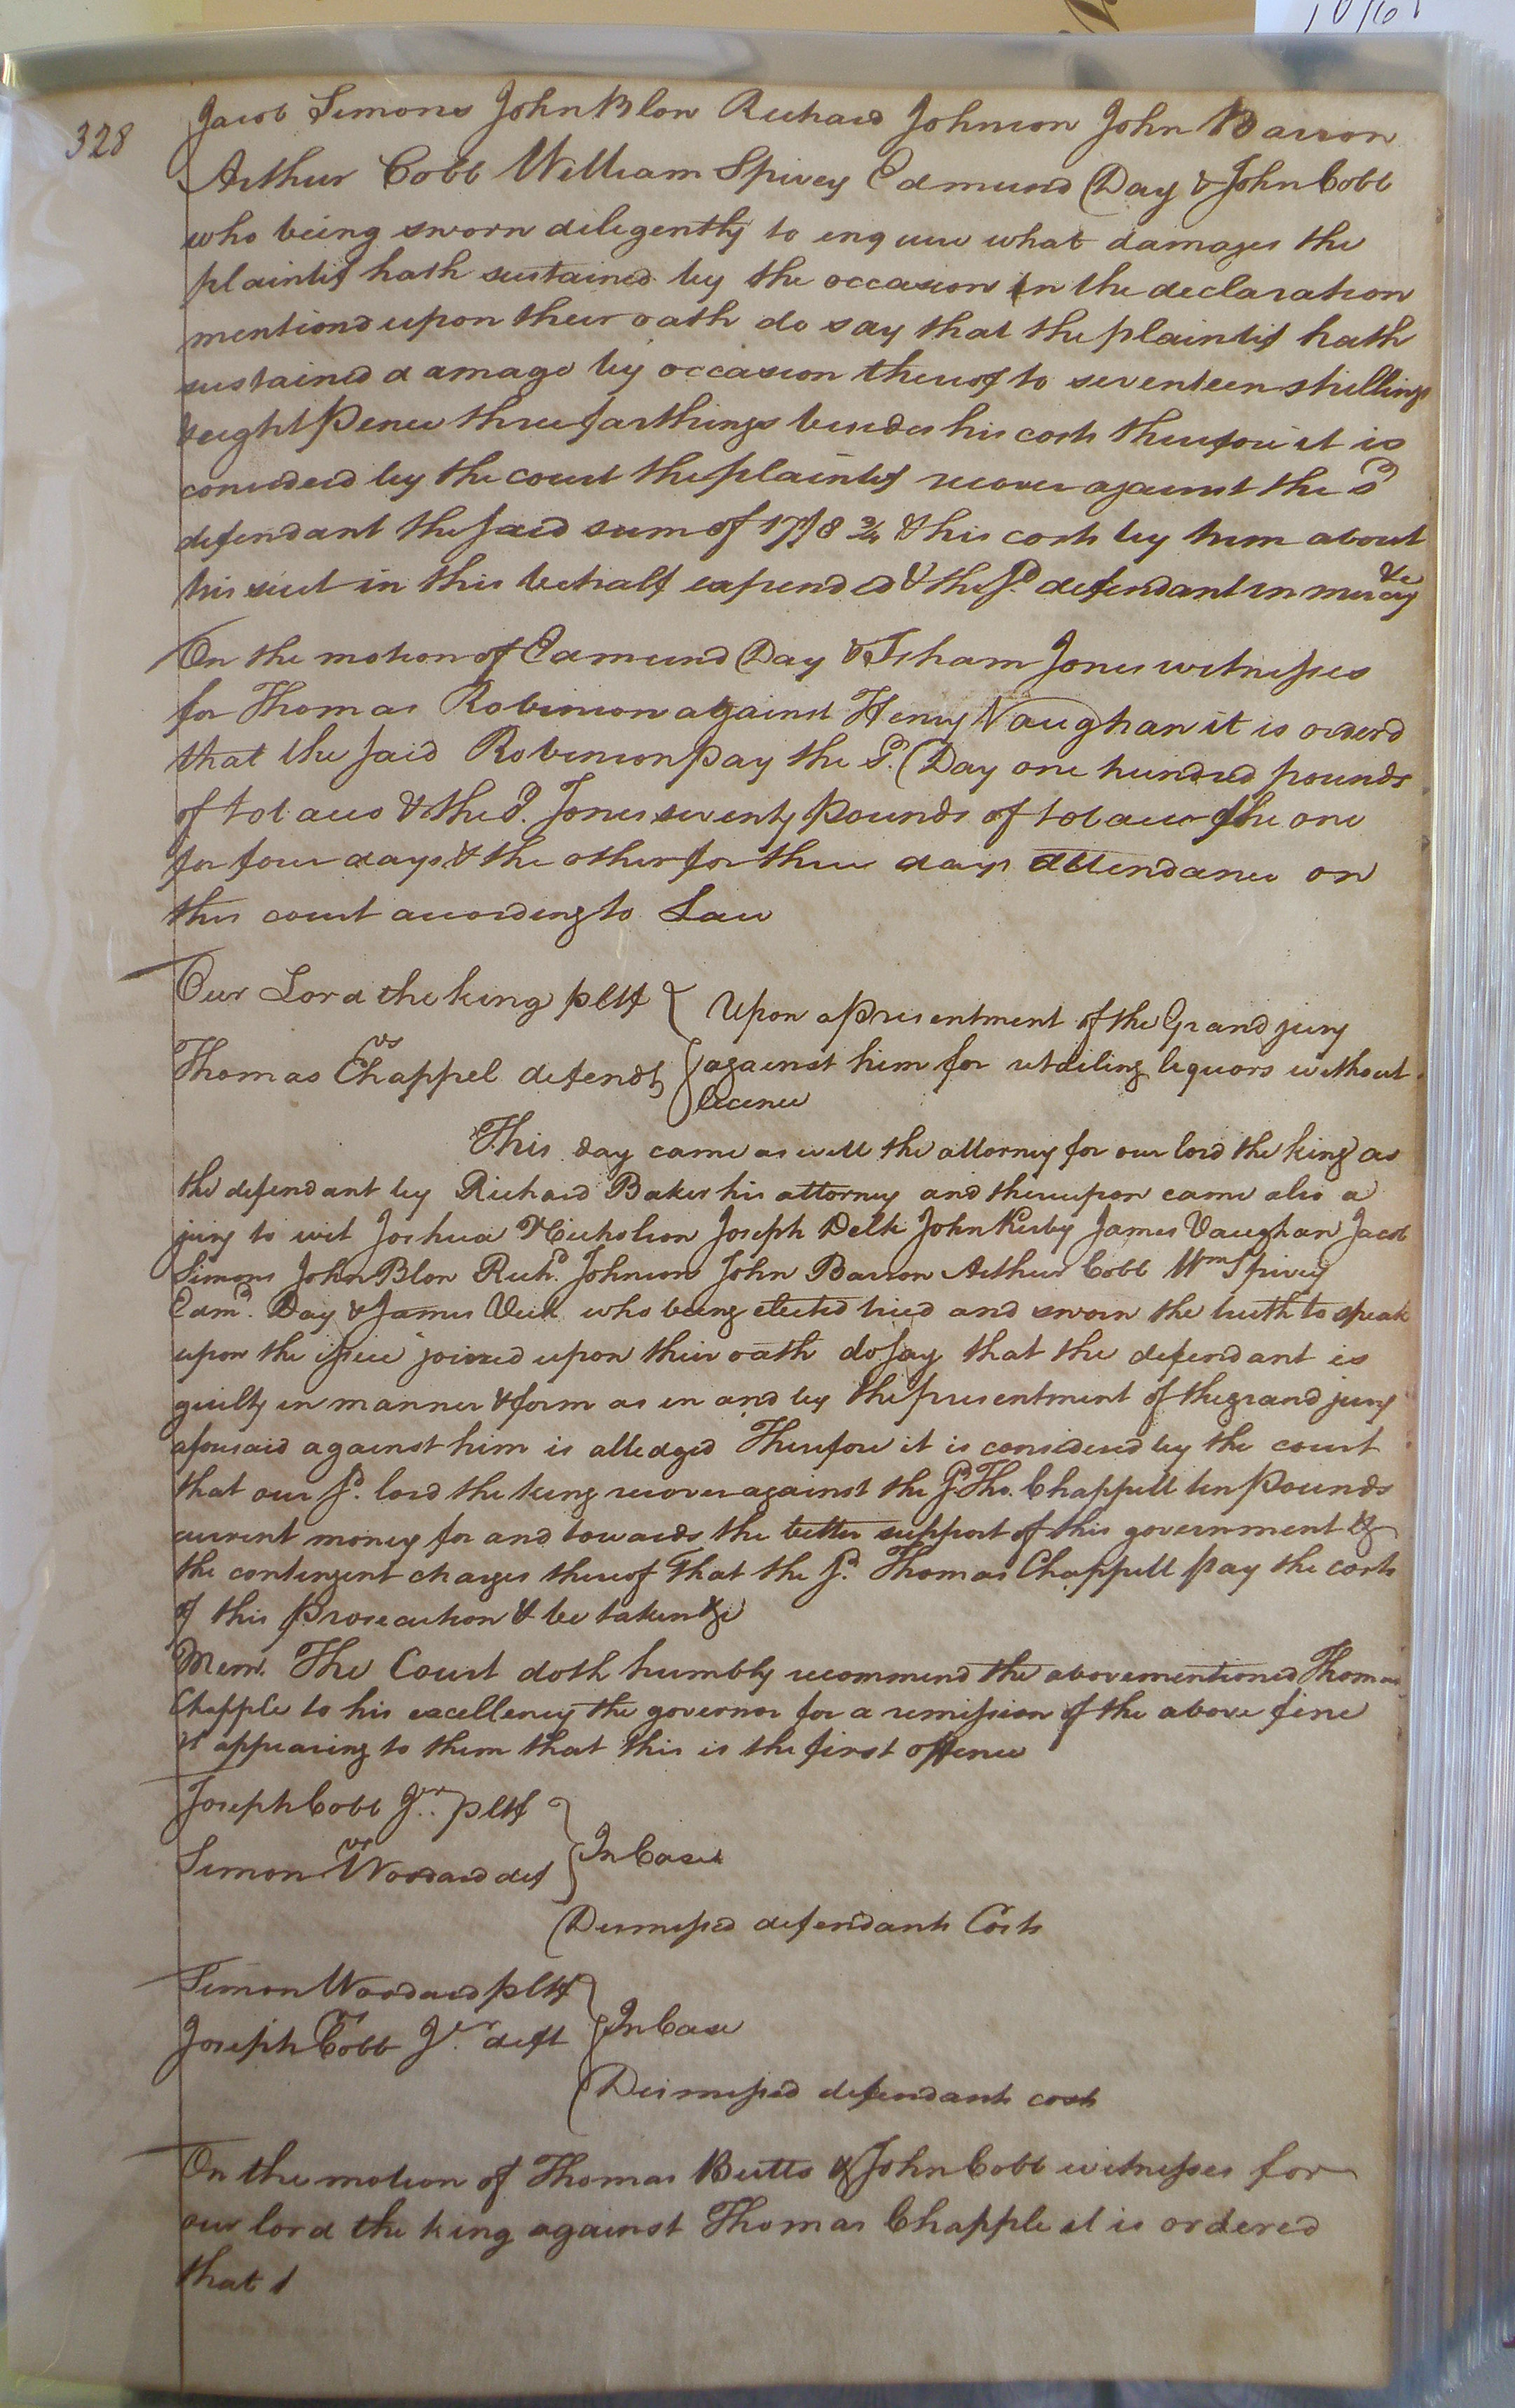 328
Jacob Simons John Blow Richard Johnson John Barron
Arthur Cobb William Spivey Edmund Day & John Cobb
who being sworn diligently to enquire what damages the
plaintif hath sustained by the occasion in the declaration
mentiond upon their oath do say that the plaintif hath
sustained damage by occasion thereof to seventeen shillings
& eight pence three farthings besides his costs therefore it is
considerd by the court the plaintif recover against the sd
defendant the said sum of 17/8 3/4 & his costs by him about
his suit in this behalf expended & the sd. defendant in mercy &c
On the motion of Edmund Day & Isham Jones witnesses
for Thomas Robinson against Henry Vaughan it is orderd
that the said Robinson pay the sd. Day one hundred pounds
of tobacco & the sd. Jones seventy pounds of tobacco the one
for four days & the other for three days attendance on
this court according to Law
Our Lord the king pltf
Upon a presentment of the Grand jury
vs
against him for retailing liquors without
Thomas Chappel defendt
licence
This day came as well the attorney for our lord the king as
the defendant by Richard Baker his attorney and thereupon came also a
jury to wit Joshua Nicholson Joseph Delk John Kirby James Vaughan Jacob
Simons John Blow Richd. Johnson John Barron Arthur Cobb Wm Spivey
Edmd. Day & James Deik who being elected tried and sworn the truth to speak
upon the issue joined upon their oath do say that the defendant is
guilty in manner & form as in and by the presentment of the grand jury
aforesaid against him is alledged Therefore it is considered by the court
that our sd. lord the king recover against the sd Tho. Chappell ten pounds
current money for and towards the better support of this government &
the contingent charges thereof That the sd. Thomas Chappell pay the costs
of this prosecution & be taken &c
Mem. The Court doth humbly recommend the abovementioned Thomas
Chapple to his excellency the governor for a remission of the above fine
it appearing to them that this is the first offence
Joseph Cobb Jr. pltf
vs
In Case
Simon Woodard def
Dismissed defendants Costs
Simon Woodard pltf
vs
In Case
Joseph Cobb Jr. deft
Dismissed defendants costs
On the motion of Thomas Butts & John Cobb witnesses for
our lord the king against Thomas Chapple it is ordered
that t